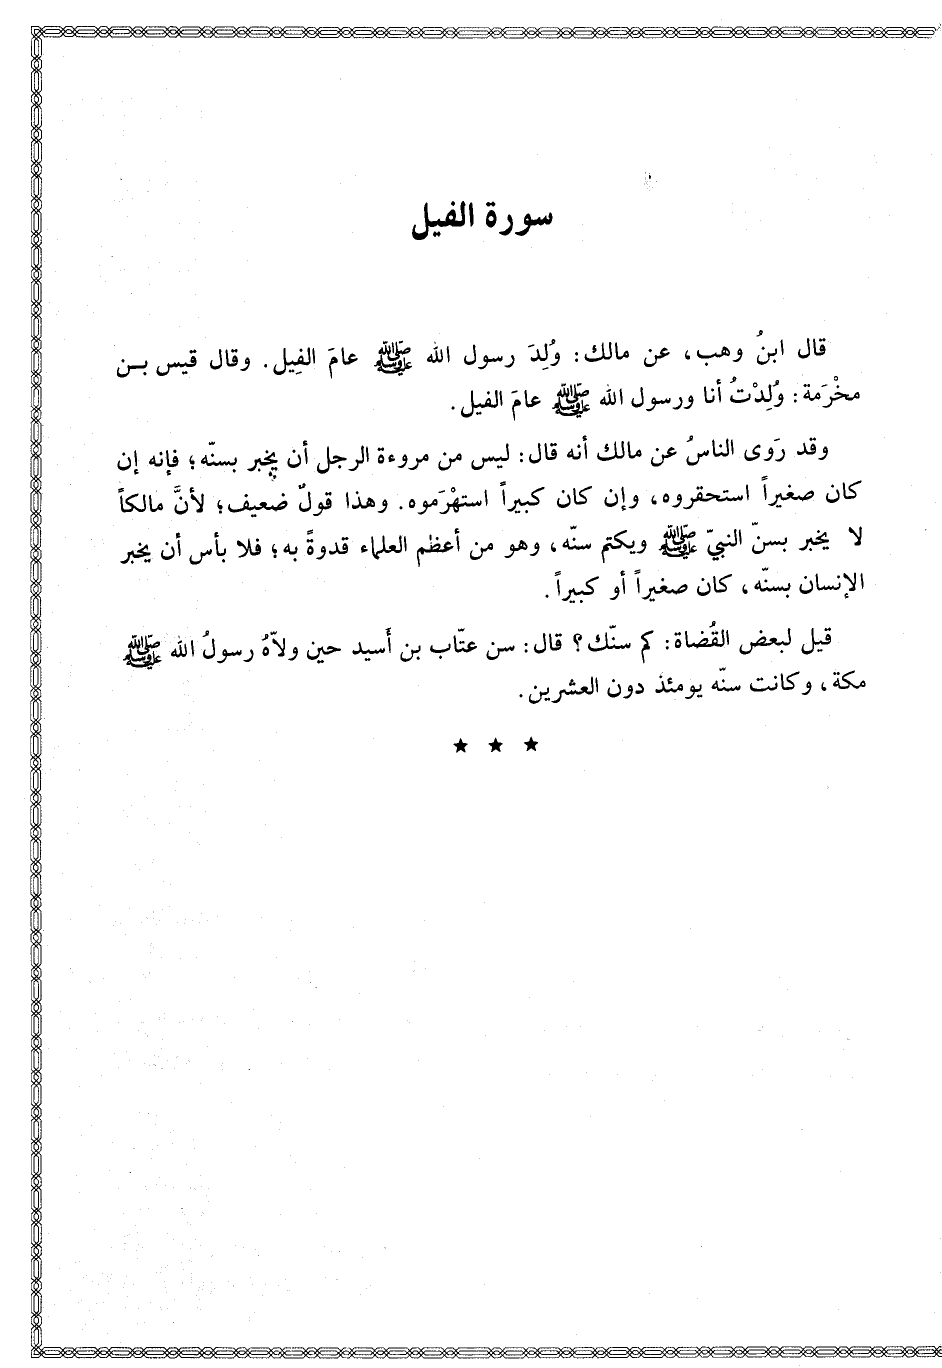 سورة الفيل
قال ابنُ وهب، عن مالك: وُلِدَ رسول الله ﷺ عامَ الفِيل. وقال قيس بـن
مخْرَمة: وُلِدْتُ أنا ورسول الله ﷺ عامَ الفيل.
وقد رَوى الناسُ عن مالك أنه قال: ليس من مروءة الرجل أن يخبر بسنّه؛ فإنه إن
كان صغيراً استحقروه، وإن كان كبيراً استهْرَموه. وهذا قولٌ ضعيف؛ لأنَّ مالكاً
لا يخبر بسنّ النبيّ ﷺ ويكتم سنّه، وهو من أعظم العلماء قدوةً به؛ فلا بأس أن يخبر
الإنسان بسنّه، كان صغيراً أو كبيراً.
قيل لبعض القُضاة: كم سنّك؟ قال: سن عتّاب بن أَسيد حين ولاّهُ رسولُ الله ﷺ
مكة، وكانت سنّه يومئذ دون العشرين.
★ ★ ★